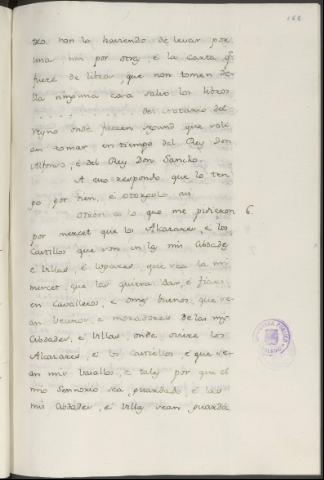 166
sea non la habiendo de levar por
una, nin por otra, é la carta qe.
fuere de librar, que non tomen de-
lla ninguna cosa salvo los libros
. . . . . . . . . . . . del notario del
Reyno onde fueren segund que solí-
an tomar en tiempo del Rey Don
Alfonso, é del Rey Don Sancho.
A eso respondo que lo ten-
go por bien, é otorgolo asi
Otrosi a lo que me pidieron 6.
por merced que los Alcazares, é los
Castillos que son en las mis Cibdades
é Villas, é logares, que sea la mi
merced, que las quiera dar, é fiar
en Cavalleros, é omes buenos, que se-
an vecinos, é moradores de las mis
Cibdades, é Villas, onde ovire los
Alcazares, é los Castillos é que se-
an mis vasallos, é tales por que el
mio Sennorio sea guardado é las
mis Cibdades, é Villas sean guarda-